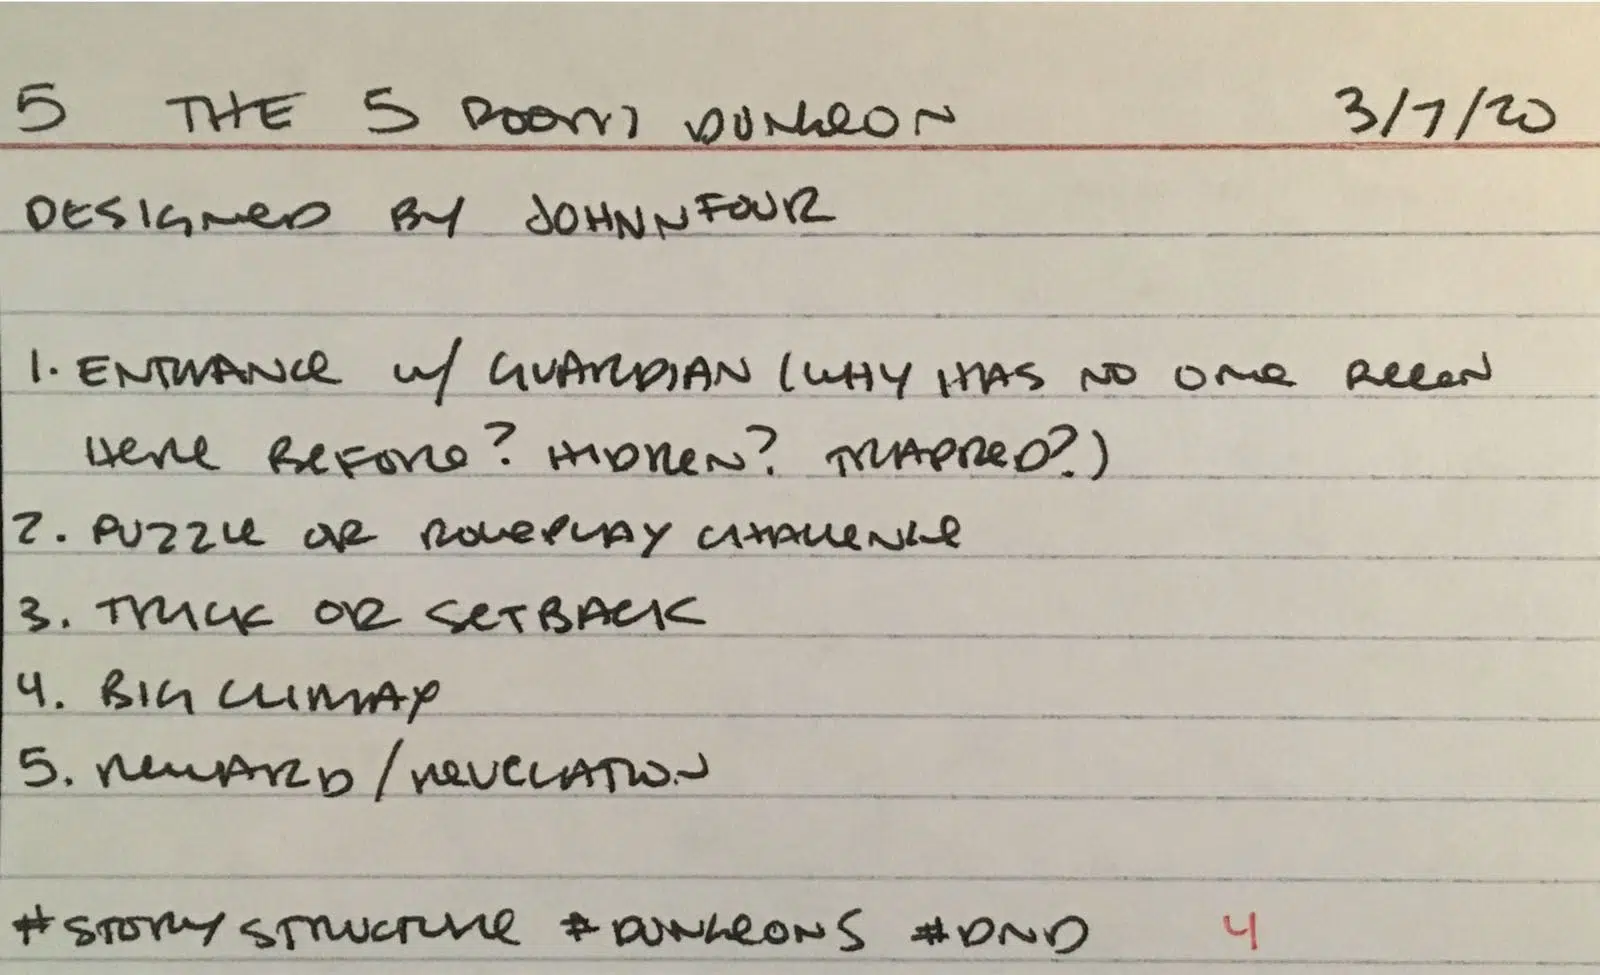 5 THE 5 ROOM DUNGEON 3/7/20
DESIGNED BY JOHNN FOUR
1. ENTRANCE W/ GUARDIAN (WHY HAS NO ONE BEEN
HERE BEFORE? HIDDEN? TRAPPED?)
2. PUZZLE OR ROLEPLAY CHALLENGE
3. TRICK OR SETBACK
4. BIG CLIMAX
5. REWARD/REVELATION
#STORYSTRUCTURE #DUNGEONS #DND 4